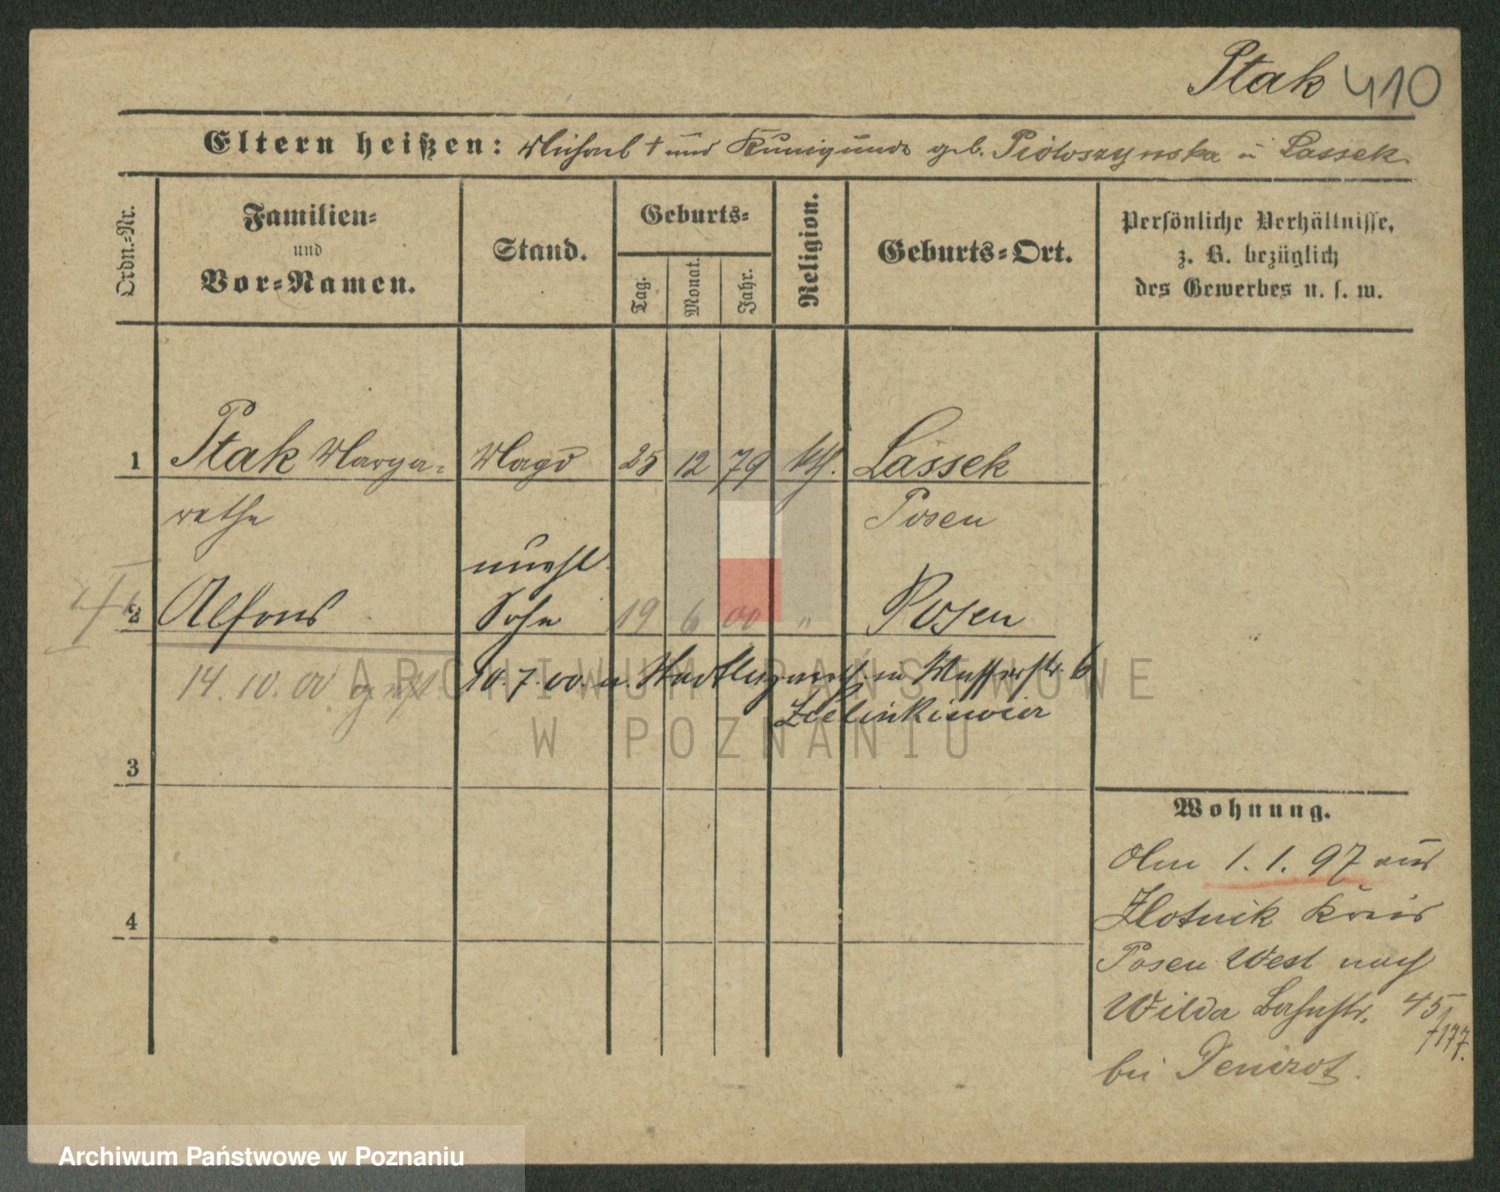 Ptak 410
Eltern heißen: Michael † und Kunigunde geb. Piotroszynska in Lassek.
Ordn.-Nr.
Familien-
und
Vor-Namen.
Stand.
Geburts-
Tag.
Monat.
Jahr.
Religion.
Geburts-Ort.
Persönliche Verhältnisse,
z. B. bezüglich
des Gewerbes u. s. w.
1 Ptak Marga- Magd 25 12 79 kth. Lassek
rethe Posen
unehl.
2 Alfons Sohn 19 6 00 " Posen
14.10.00 gest 10.7.00. Wasserstr. 6
3
4
Wohnung.
Am 1.1.97 aus
Zlotnik Kreis
Posen West nach
Wilda Bahnstr. 45
/177.
bei
ARCHIWUM PAŃSTWOWE
W POZNANIU
Archiwum Państwowe w Poznaniu